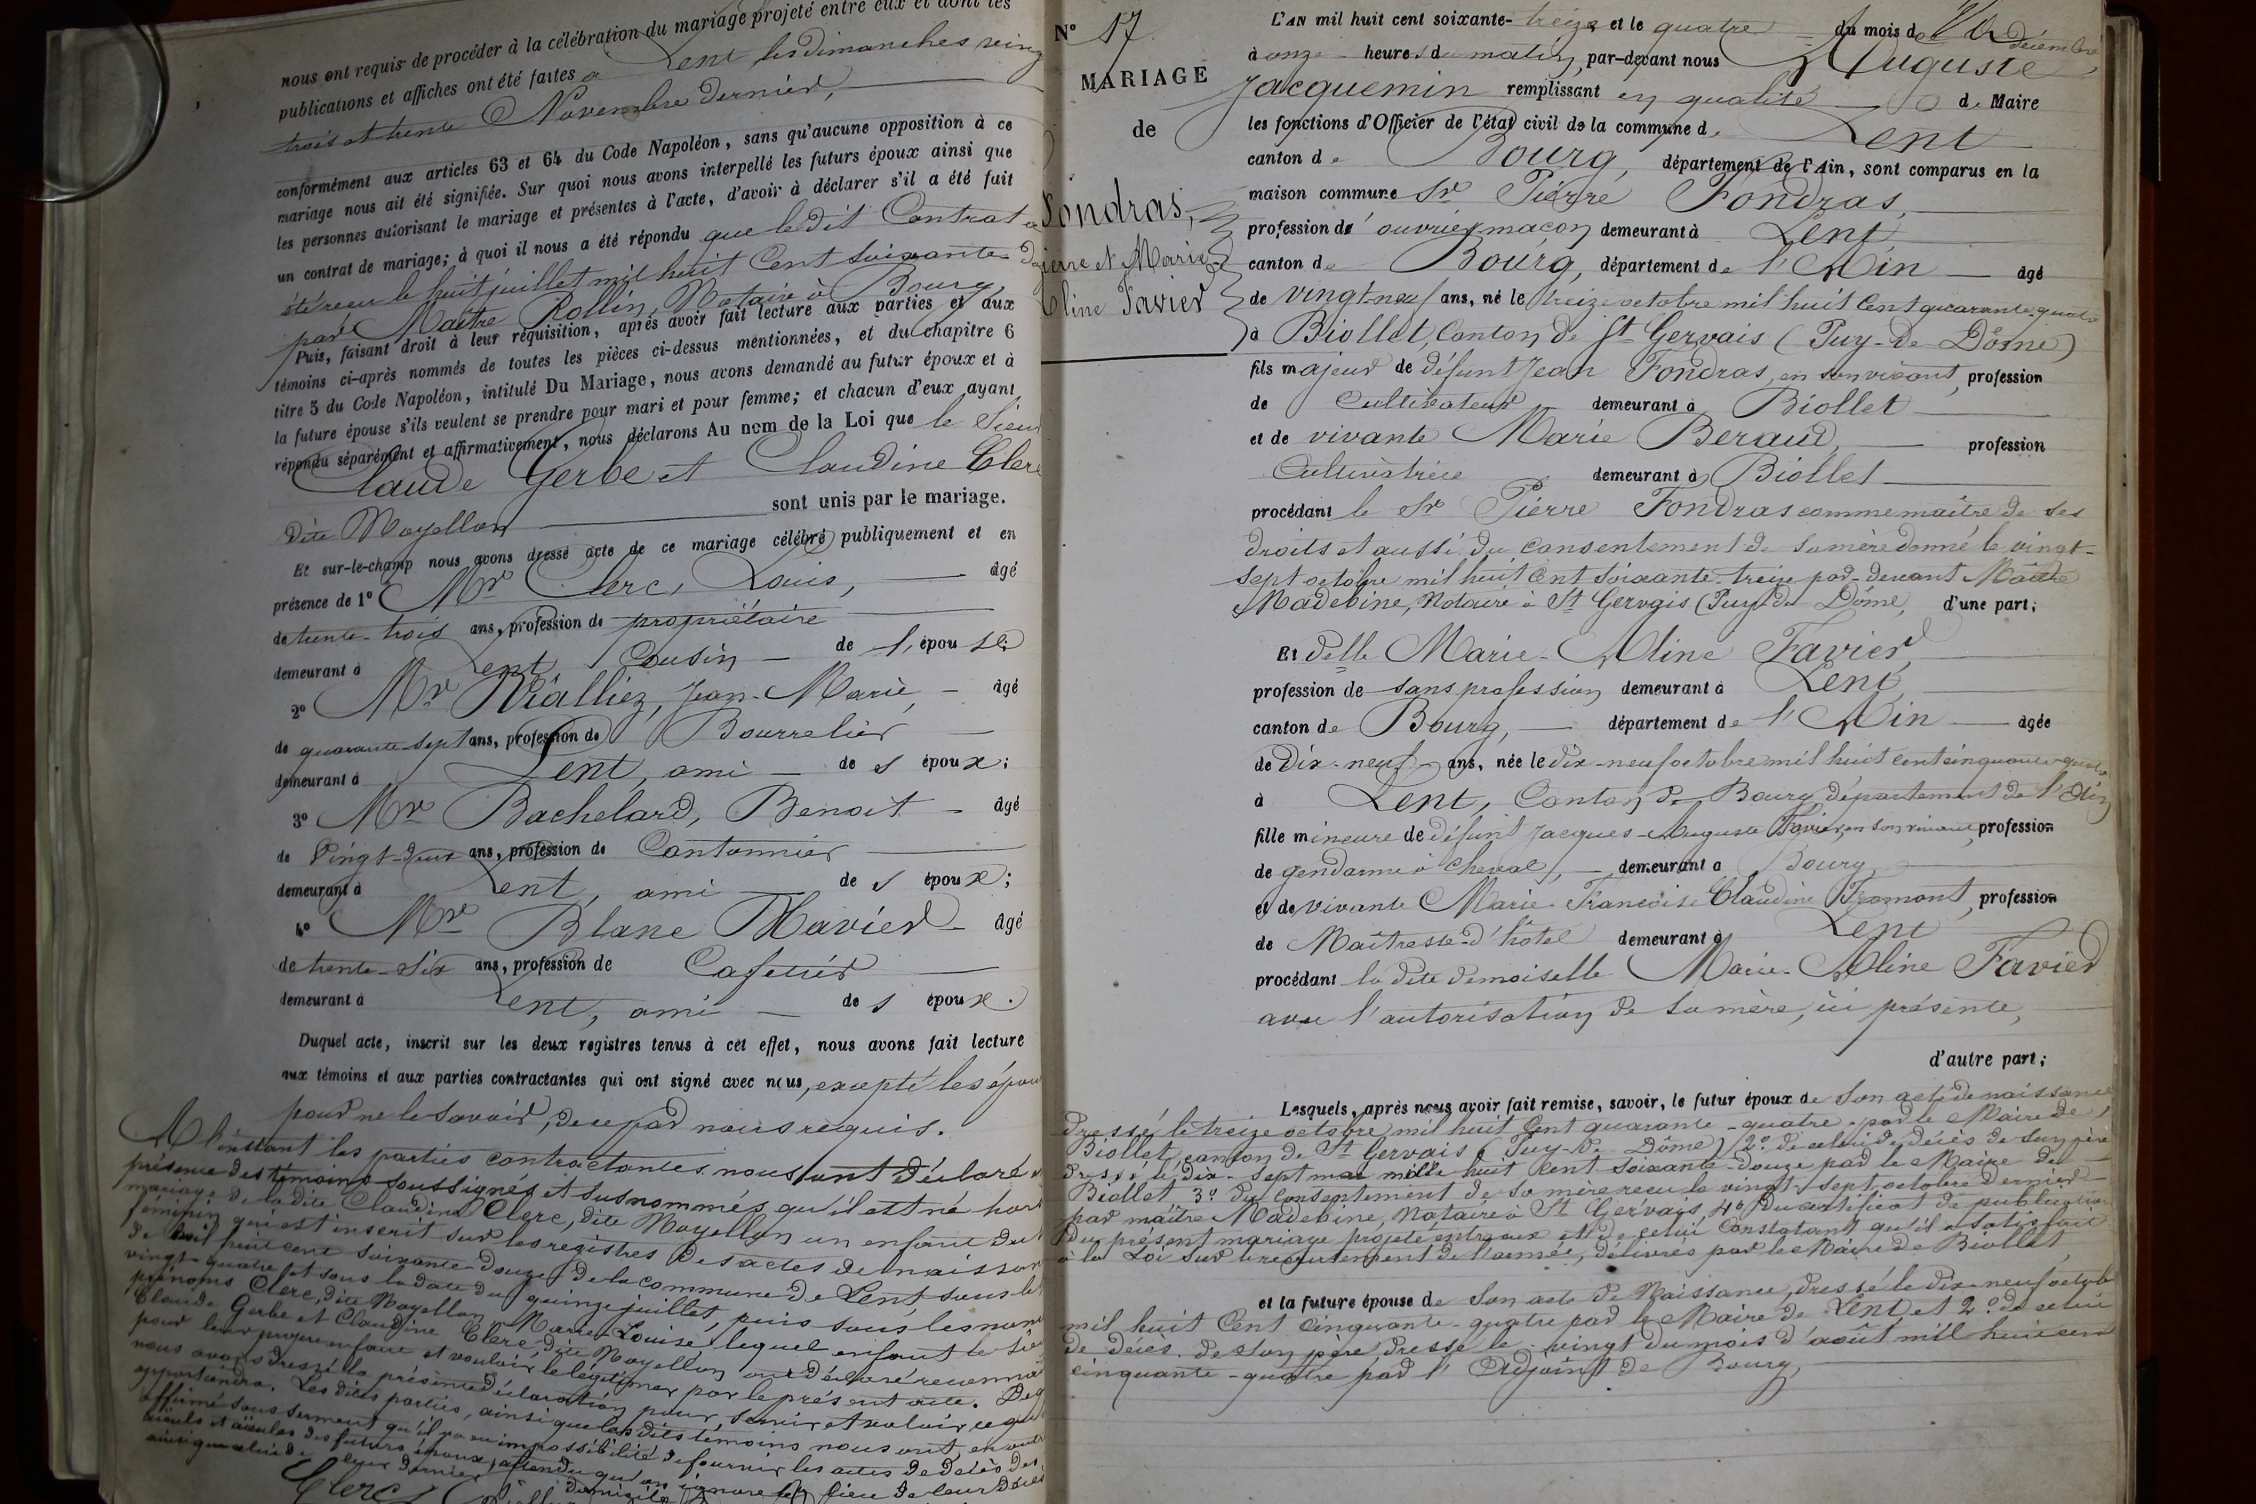 nous ont requis de procéder à la célébration du mariage projeté entre eux et dont les
publications et affiches ont été faites à Lent les dimanches vingt
trois et trente Novembre dernier,
conformément aux articles 63 et 64 du Code Napoléon, sans qu'aucune opposition à ce
mariage nous ait été signifiée. Sur quoi nous avons interpellé les futurs époux ainsi que
les personnes autorisant le mariage et présentes à l'acte, d'avoir à déclarer s'il a été fait
un contrat de mariage; à quoi il nous a été répondu que le dit Contrat a
été reçu le huit juillet mil huit Cent soixante
par Maître Rollin, Notaire à Bourg,
Puis, faisant droit à leur réquisition, après avoir fait lecture aux parties et aux
témoins ci-après nommés de toutes les pièces ci-dessus mentionnées, et du chapitre 6
titre 5 du Code Napoléon, intitulé Du Mariage, nous avons demandé au futur époux et à
la future épouse s'ils veulent se prendre pour mari et pour femme; et chacun d'eux ayant
répondu séparément et affirmativement, nous déclarons Au nom de la Loi que le Sieur
Claude Gerbe et Claudine Clerc
dite Noyellon sont unis par le mariage.
Et sur-le-champ nous avons dressé acte de ce mariage célébré publiquement et en
présence de 1° Mr Clerc, Louis, âgé
de trente-trois ans, profession de propriétaire
demeurant à Lent, Cousin de l'épouse;
2° Mr Vialliez, Jean-Marie, âgé
de quarante-sept ans, profession de Bourrelier
demeurant à Lent, ami de s époux;
3° Mr Bachelard, Benoit âgé
de Vingt-deux ans, profession de Cantonnier
demeurant à Lent, ami de s époux;
4° Mr Blanc Xavier âgé
de trente-six ans, profession de Cafetier
demeurant à Lent, ami de s époux.
Duquel acte, inscrit sur les deux registres tenus à cet effet, nous avons fait lecture
aux témoins et aux parties contractantes qui ont signé avec nous, excepté les époux
pour ne le savoir, de ce par nous requis.
A l'instant les parties contractantes nous ont déclaré en
présence des témoins soussignés et susnommés qu'il est né hors
mariage de la dite Claudine Clerc, dite Noyellon un enfant du
féminin qui est inscrit sur les registres des actes de naissan
de mil huit cent soixante-douze de la commune de Lent, sous le
vingt-quatre et sous la date du quinze juillet, puis sous les noms
prénoms Clerc, dite Noyellon Marie-Louise lequel enfant le Sieur
Claude Gerbe et Claudine Clerc, dite Noyellon ont déclaré reconnaî
pour leur propre enfant et vouloir le légitimer par le présent acte. De q
nous avons dressé la présente déclaration pour servir et valoir ce que
appartiendra. Les dites parties, ainsi que les dits témoins nous ont, en outre
affirmé sous serment qu'il y a eu impossibilité de fournir les actes de décès des
aïeuls et aïeules des futurs époux, attendu qu'on ignore le lieu de leur décès
ainsi que celui de leur dernier domicile
Clerc
N° 17
MARIAGE
de
Fondras,
Pierre et Marie
Aline Favier
L'AN mil huit cent soixante-treize et le quatre du mois de décembre
à onze heures du matin, par-devant nous Auguste
Jacquemin remplissant en qualité de Maire
les fonctions d'Officier de l'état civil de la commune de Lent
canton de Bourg, département de l'Ain, sont comparus en la
maison commune Sr Pierre Fondras,
profession de ouvrier maçon demeurant à Lent,
canton de Bourg, département de l'Ain âgé
de vingt-neuf ans, né le treize octobre mil huit Cent quarante-quatre
à Biollet, Canton de St Gervais (Puy-de Dôme)
fils majeur de défunt Jean Fondras, en son vivant, profession
de Cultivateur demeurant à Biollet
et de vivante Marie Beraud, profession
Cultivatrice demeurant à Biollet
procédant le Sr Pierre Fondras comme maître de ses
droits et aussi du consentement de sa mère donné le vingt-
sept octobre mil huit Cent soixante-treize par-devant Maître
Madebine, Notaire à St Gervais (Puy-de Dôme, d'une part;
Et delle Marie-Aline Favier,
profession de sans profession demeurant à Lent,
canton de Bourg, département de l'Ain âgée
de dix-neuf ans, née le dix-neuf octobre mil huit cent cinquante-quatre
à Lent, Canton de Bourg, département de l'Ain
fille mineure de défunt Jacques-Auguste Favier, en son vivant, profession
de gendarme à cheval, demeurant à Bourg,
et de vivante Marie-Françoise Claudine Fromont, profession
de Maîtresse-d'hôtel demeurant à Lent
procédant la dite demoiselle Marie-Aline Favier
avec l'autorisation de sa mère, ici présente,
d'autre part;
Lesquels, après nous avoir fait remise, savoir, le futur époux de son acte de naissance
dressé le treize octobre mil huit Cent quarante-quatre par le Maire de
Biollet, canton de St Gervais (Puy-de Dôme) 2° de celui de décès de son père
dressé le dix-sept mai mille huit cent soixante-douze par le Maire de
Biollet 3° du Consentement de sa mère reçu le vingt-sept octobre dernier
par maître Madebine, Notaire à St Gervais, 4° du certificat de publication
du présent mariage projeté entre eux et de celui constatant qu'il a satisfait
à la Loi sur le recrutement de l'armée, délivrés par le Maire de Biollet,
et la future épouse de son acte de Naissance, dressé le dix-neuf octobre
mil huit Cent cinquante-quatre par le Maire de Lent et 2° de celui
de décès de son père dressé le vingt du mois d'août mil huit cent
cinquante-quatre par l'Adjoint de Bourg,